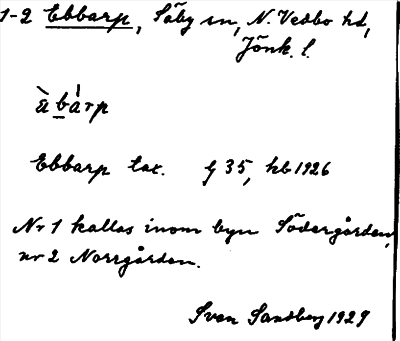 1-2 Ebbarp, Säby sn, N. Vedbo hd,
Jönk. l.
ä̀bárp
Ebbarp tax. f 35, kb 1926
Nr 1 kallas inom byn Södergården,
nr 2 Norrgården.
Sven Sandberg 1929